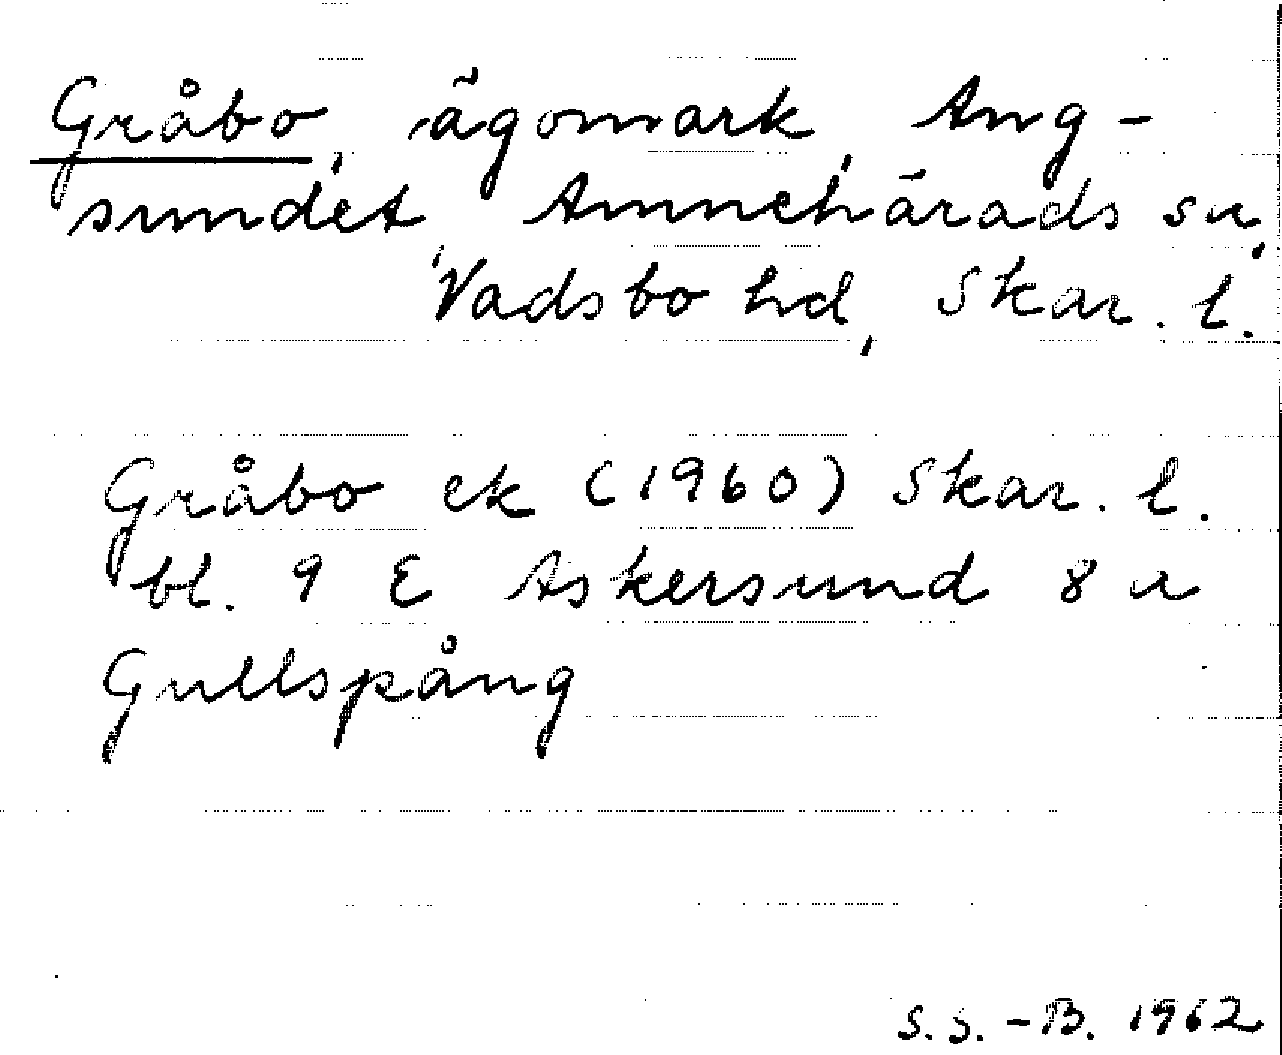 Gråbo, ägomark, Ang-
sundet, Amnehärads sn,
Vadsbo hd, Skar. l.
Gråbo ek (1960) Skar. l.
bl. 9 E Askersund 8 a
Gullspång
S.S.-B. 1962